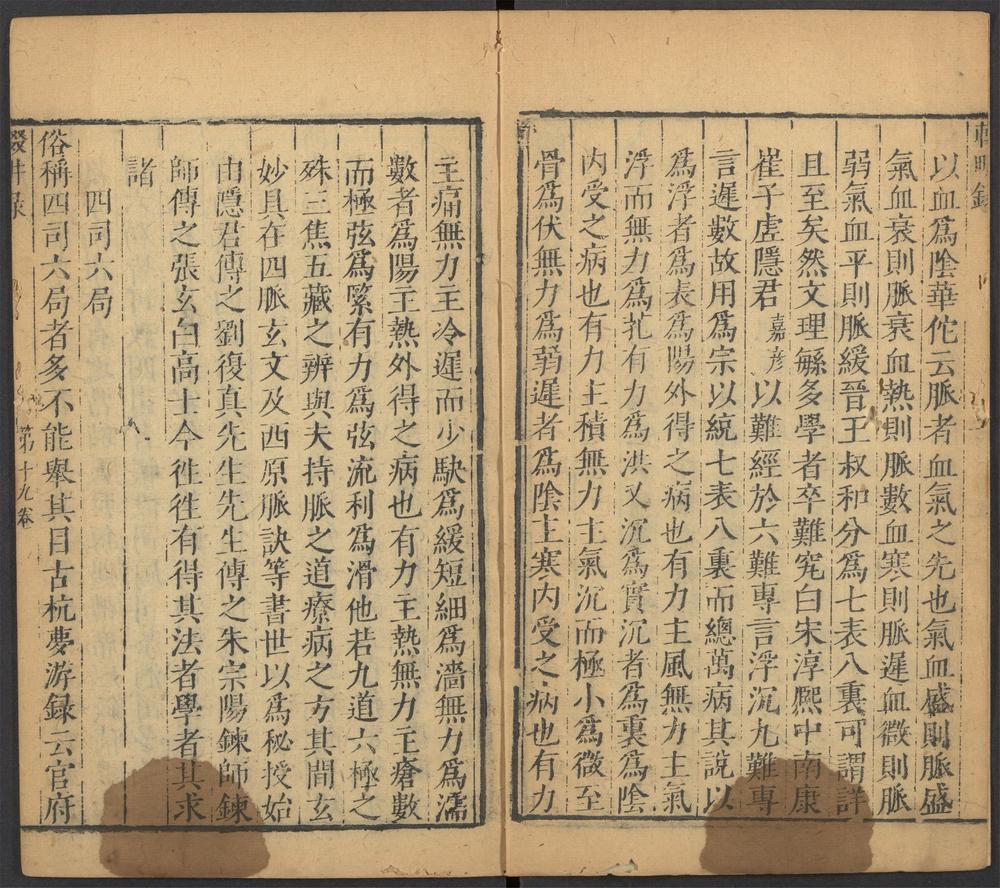 以血爲陰華佗云脈者血氣之先也氣血盛則脈盛
氣血衰則脈衰血熱則脈數血寒則脈遲血微則脈
弱氣血平則脈緩晉王叔和分爲七表八裏可謂詳
且至矣然文理繇多學者卒難究白宋淳熙中南康
崔子虛隱君嘉彥以難經於六難專言浮沉九難專
言遲數故用爲宗以統七表八裏而總萬病其說以
爲浮者爲表爲陽外得之病也有力主風無力主氣
浮而無力爲芤有力爲洪又沉爲實沉者爲裏爲陰
內受之病也有力主積無力主氣沉而極小爲微至
骨爲伏無力爲弱遲者爲陰主寒內受之病也有力
主痛無力主冷遲而少駃爲緩短細爲濇無力爲濡
數者爲陽主熱外得之病也有力主熱無力主瘡數
而極弦爲緊有力爲弦流利爲滑他若九道六極之
殊三焦五藏之辨與夫持脈之道療病之方其間玄
妙具在四脈玄文及西原脈訣等書世以爲秘授始
由隱君傳之劉復真先生先生傳之朱宗陽鍊師鍊
師傳之張玄白高士今徃徃有得其法者學者其求
諸
四司六局
俗稱四司六局者多不能舉其目古杭夢游録云官府
輟畊録
第十九卷